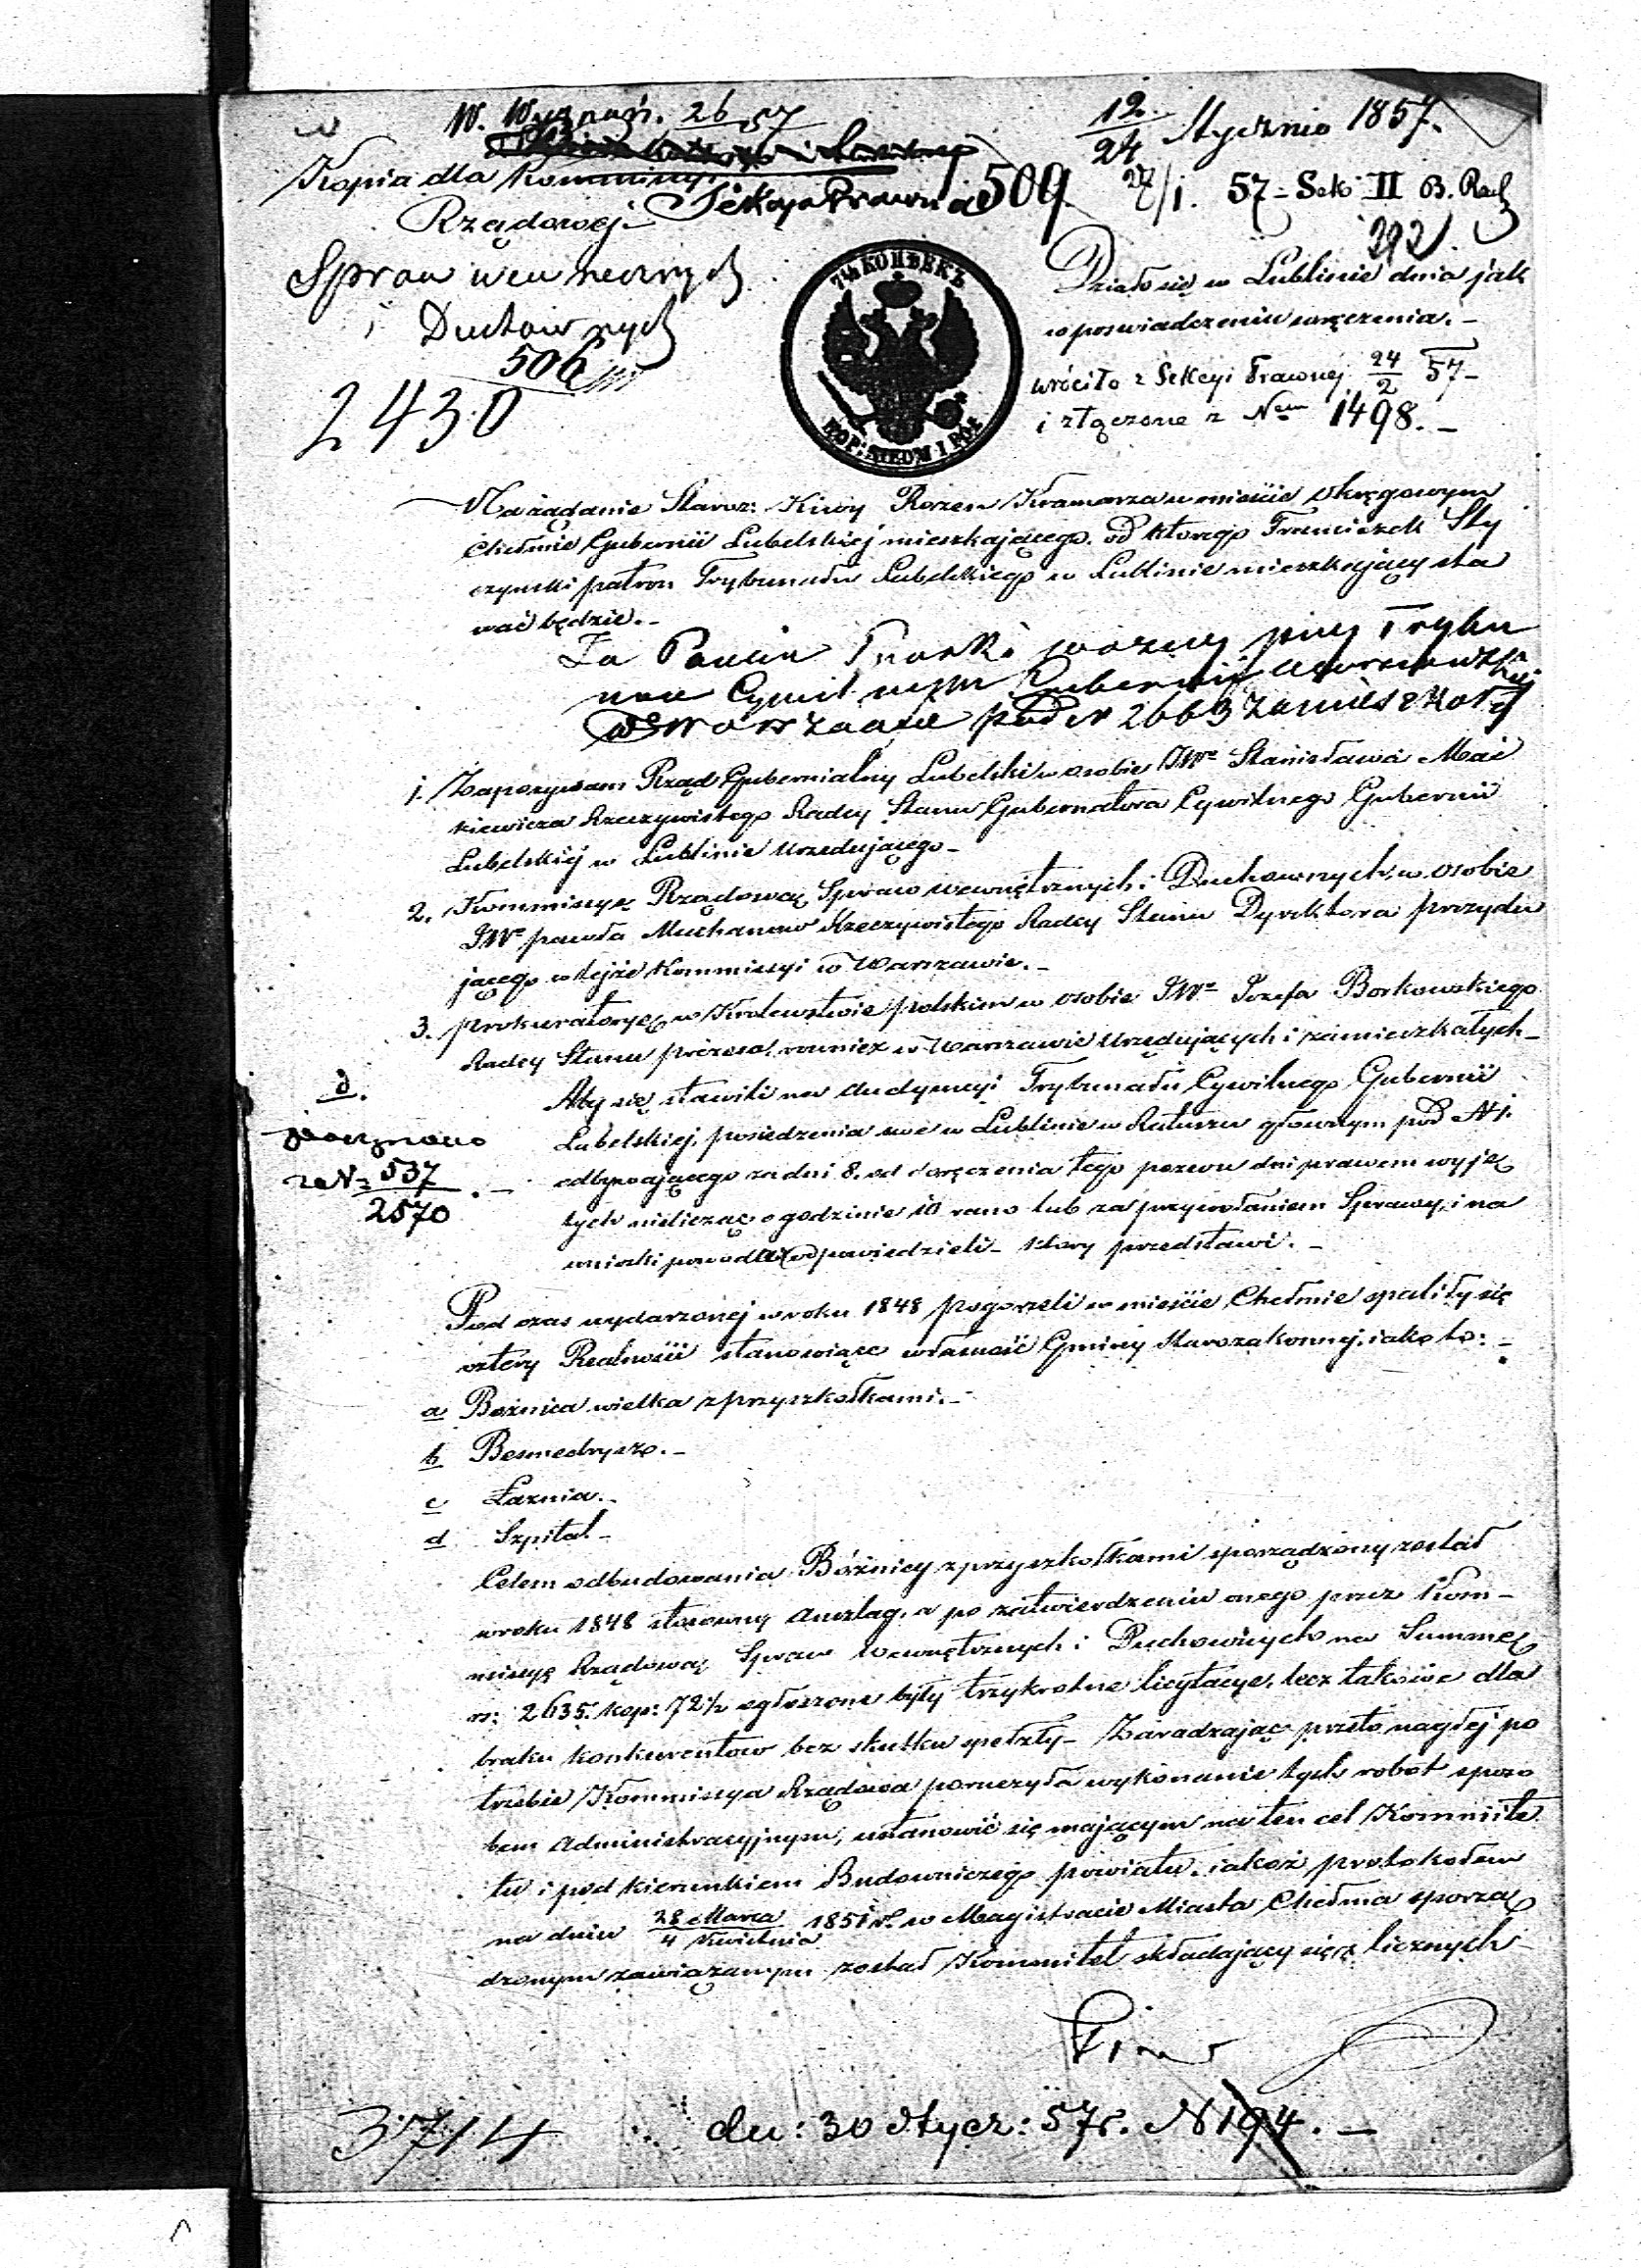 W. Wyznań. 26/1 57
12/24 Stycznia 1857.
Kopia dla Kommissyi
Rządowej
Sekcya Prawna 509.
27/1. 57 - Sek II B.
292.
Spraw wewnetrznych
i Duchownych
506
2430
7½ КОПѢЕКЪ
KOP: SIEDM I PÓŁ
Działo się w Lublinie dnia jak
w poświadczeniu doręczenia. -
wróciło z Sekcyi Prawnej 24/2 57 -
i złączone z Nem 1498. -
Na żądanie Staroz: Kiwy Rozen Kramarza w mieście Okręgowym
Chełmie Gubernii Lubelskiej mieszkającego, od którego Franciszek Sty
czyński patron Trybunału Lubelskiego w Lublinie mieszkający sta
wać będzie. -
Ja woźny przy Trybu
nale Cywilnym Gubernii Warszawskiej
w Warszawie pod N 2663 zamieszkały
1. Zapozywam Rząd Gubernialny Lubelski w osobie JWo Stanisława Mać
kiewicza Rzeczywistego Radcy Stanu Gubernatora Cywilnego Gubernii
Lubelskiéj w Lublinie urzedującego -
2. Kommissyę Rządową Spraw wewnętrznych i Duchownych, w osobie
JWo pawła Muchanow Rzeczywistego Radcy Stanu Dyrektora prezydu
jącego w tejże Kommissyi w Warszawie. -
3. prokuratoryę w Królewstwie polskiem w osobie JWo Jozefa Borkowskiego
Radcy Stanu prezesa, rownież w Warszawie urzędujących i zamieszkałych -
Aby się stawili na Audyencyi Trybunału Cywilnego Gubernii
Lubelskiej, posiedzenia swe w Lublinie w Ratuszu głownym pod N 1.
odbywającego za dni 8. od doręczenia tego pozwu dni prawem wyję
tych nielicząc o godzinie 10 rano lub za przywołaniem Sprawy, i na
wnioski powoda odpowiedzieli - ktory przedstawi. -
d.
za N 537
2570
Pod czas wydarzonej w roku 1848 pogorzeli w mieście Chełmie spaliły się
cztery Realności stanowiące własność Gminy Starozakonnej, iako to: -
a Boźnica wielka z przyszkołkami. -
b Besmedrysz. -
c Łaznia. -
d Szpital. -
Celem odbudowania Bóźnicy z przyszkołkami sporządzony został
w roku 1848 stosowny Anszlag, a po zatwierdzeniu onego przez Kom -
missyę Rządową Spraw Wewnętrznych i Duchownych na Summę
rs: 2635. kop: 72½ ogłoszone były trzykrotne licytacye, lecz takowe dla
braku konkurentow bez skutku spełzły - Zaradzając przeto nagłej po
trzebie Kommissya Rządowa poruczyła wykonanie tych robot sposo
bem Administracyjnym, ustanowić się mającym na ten cel Kommite
tu i pod kierunkiem Budowniczego powiatu, iakoż protokołem
na dniu 28 Marca / 4 Kwietnia 1851 r. w Magistracie Miasta Chełma sporzą
dzonym zawiązanym został Kommitet składający się z licznych
3714
du: 30 Stycz: 57 r. N 194. -